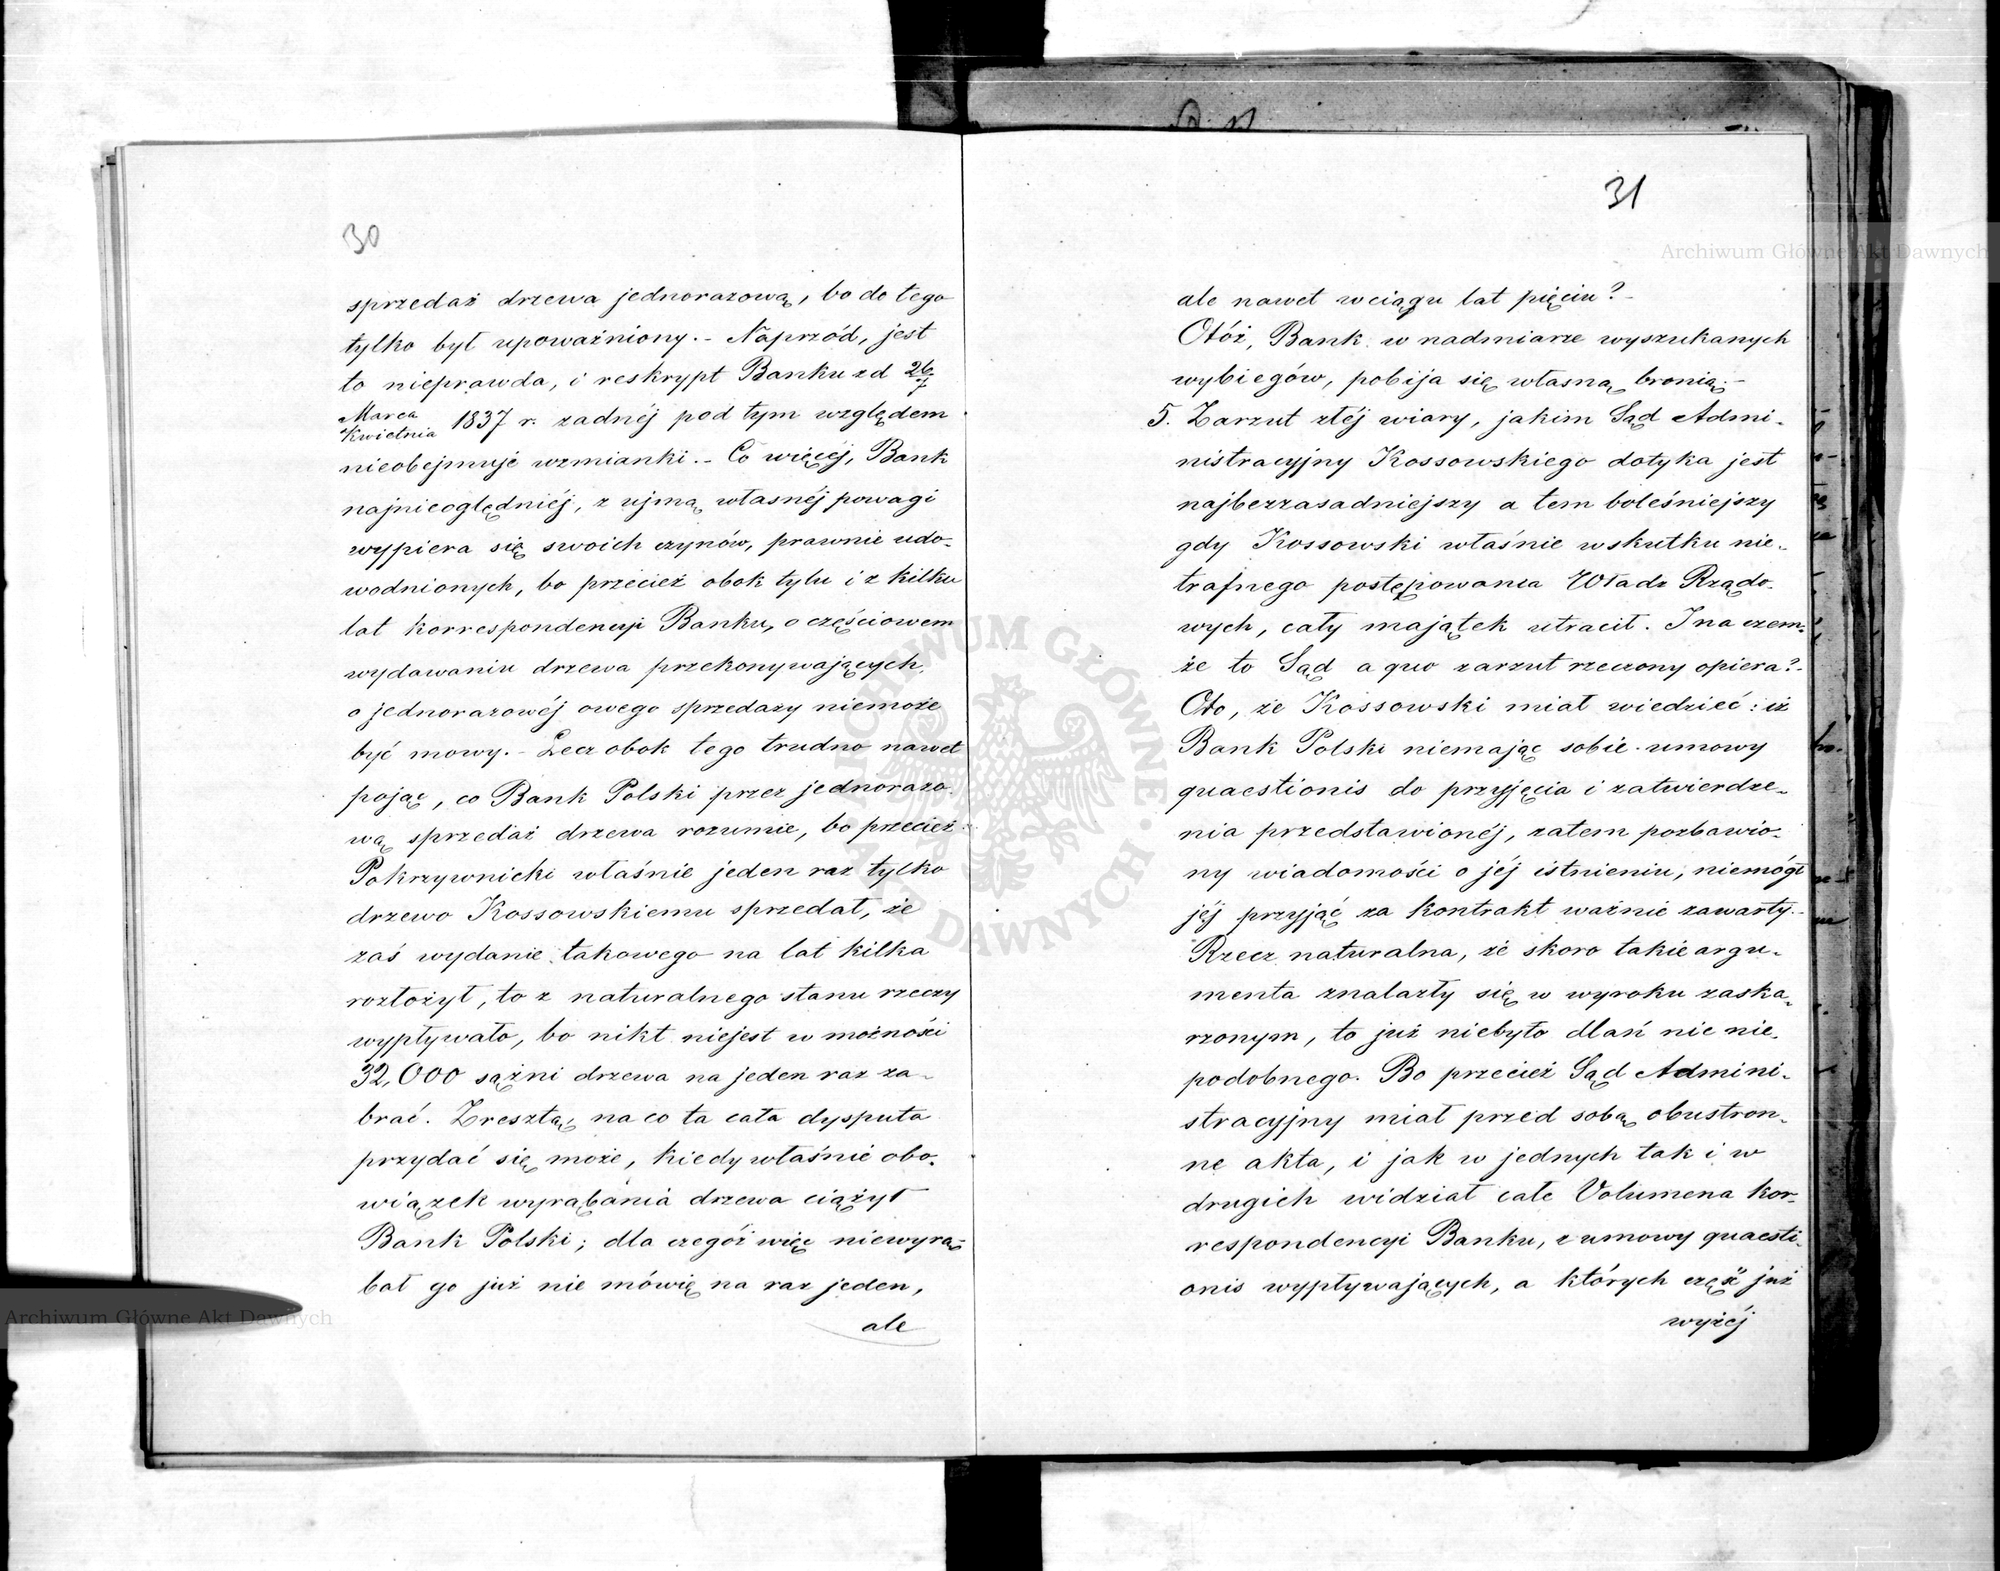 30
sprzedaż drzewa jednorazową, bo do tego
tylko był upoważniony. - Naprzód, jest
to nieprawda, i reskrypt Banku zd 26/7
Marca/Kwietnia 1837 r. żadnéj pod tym względem
nieobejmuje wzmianki. - Co więcéj, Bank
najnieoględniéj, z ujmą własnéj powagi
wypiera się swoich czynów, prawnie udo-
wodnionych, bo przecież obok tylu i z kilku
lat korrespondencyi Banku, o częściowem
wydawaniu drzewa przekonywających,
o jednorazowéj owego sprzedaży niemoże
być mowy. - Lecz obok tego trudno nawet
pojąć, co Bank Polski przez jednorazo-
wą sprzedaż drzewa rozumie, bo przecież
Pokrzywnicki właśnie jeden raz tylko
drzewo Kossowskiemu sprzedał, że
zaś wydanie takowego na lat kilka
rozłożył, to z naturalnego stanu rzeczy
wypływało, bo nikt niejest w możności
32,000 sążni drzewa na jeden raz za-
brać. Zresztą, na co ta cała dysputa
przydać się może, kiedy właśnie obo-
wiązek wyrąbania drzewa ciążył
Bank Polski; dla czegóż więc niewyrą-
bał go już nie mówię na raz jeden,
ale
31
ale nawet wciągu lat pięciu? -
Otóż, Bank w nadmiarze wyszukanych
wybiegów, pobija się własną bronią. -
5. Zarzut złéj wiary, jakim Sąd Admi-
nistracyjny Kossowskiego dotyka jest
najbezzasadniejszy a tem boleśniejszy
gdy Kossowski właśnie wskutku nie-
trafnego postępowania Władz Rządo-
wych, cały majątek utracił. I na czem-
że to Sąd a quo zarzut rzeczony opiera? -
Oto, że Kossowski miał wiedzieć: iż
Bank Polski niemając sobie umowy
quaestionis do przyjęcia i zatwierdze-
nia przedstawionéj, zatem pozbawio-
ny wiadomości o jéj istnieniu, niemógł
jéj przyjąć za kontrakt ważnie zawarty. -
Rzecz naturalna, że skoro takie argu-
menta znalazły się w wyroku zaska-
rzonym, to już niebyło dlań nic nie-
podobnego. Bo przecież Sąd Admini-
stracyjny miał przed sobą obustron-
ne akta, i jak w jednych tak i w
drugich widział całe Volumena kor-
respondencyi Banku, z umowy quaesti-
onis wypływających, a których część już
wyżéj
Archiwum Główne Akt Dawnych
Archiwum Główne Akt Dawnych
ARCHIWUM GŁÓWNE AKT DAWNYCH